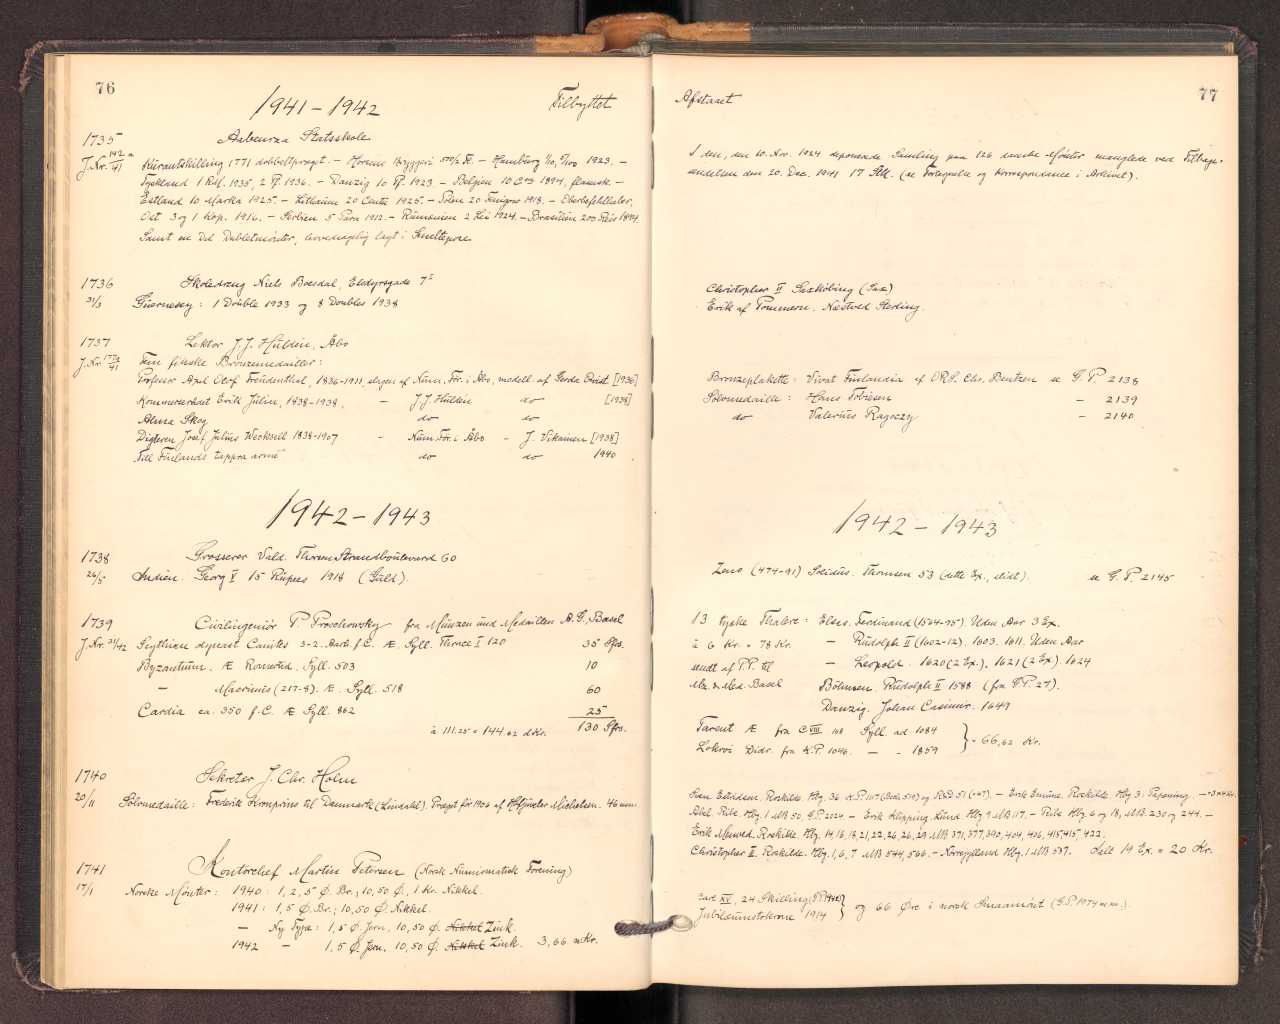 76
1941 – 1942
Tilbyttet
1735
Aabenraa Statsskole
J.Nr. 142/41
Kurantskilling 1771 dobbeltpræget. – Horsens Bryggeri – Hamburg 1923. –
Tyskland 1 Rpf. 1935, 2 Pf. 1936. – Danzig 10 Pf. 1923 – Belgien 10 Cts 1894, flamsk. –
Estland 10 Marka 1925. – Lithauen 20 Centu 1925. – Polen 20 Fenigow 1918. – Oberbefehlshaber
Ost 3 og 1 Kop. 1916. – Serbien 5 Para 1912. – Rumænien 2 Lei 1924. – Brasilien 200 Reis 1894.
Samt en Del Dubletmønter, hovedsagelig lagt i Smeltepose
1736
Skoledreng Niels Boesdal, Elsdyrsgade 7 I
31/3
Guernesey : 1 Double 1933 og 8 Doubles 1938
1737
Lektor J.J. Huldén, Åbo
J.Nr. 177a/41
Fem finske Bronzemedailler :
Professor Axel Olof Freudenthal, 1836-1911, slagen af Num. För. i Åbo, modell. af Gerda Qvist [1936]
Kommerserådet Erik Julin, 1838-1938, – J.J. Huldén do [1938]
Alma Skog do do
Digteren Josef Julius Wecksell 1838-1907 – Num. För. i Åbo – J. Vikainen [1938]
Till Finlands tappra armé do do 1940
1942 – 1943
1738
Grosserer Vald. Thrane Strandboulevard 60
26/5
Indien. Georg V 15 Rupees 1918 (Guld).
1739
Civilingeniör P. Proschowsky fra Münzen und Medaillen A.G., Basel
J.Nr. 31/42
Scythian dynast Canites 3-2. Aarh. f.C. Æ. Syll. Thrace I 120 35 Sfrs.
Byzantium. Æ Romertid. Syll. 503 10
– Macrinus (217-8). Æ. Syll. 518 60
Cardia ca. 350 f.C. Æ Syll. 862 25
130 Sfrs.
à 111.25 = 144.62 d.Kr.
1740
Sekretær J. Chr. Holm
20/11
Sølvmedaille : Frederik Kronprins til Danmark (Lindahl). Præget før 1906 af Hofjuveler Michelsen. 46 mm.
1741
Kontorchef Martin Petersen (Norsk Numismatisk Forening)
17/1
Norske Mønter : 1940 : 1, 2, 5 Ø. Br.; 10, 50 Ø., 1 Kr. Nikkel.
1941 : 1, 5 Ø. Br.; 10, 50 Ø. Nikkel.
– Ny Type : 1, 5 Ø. Jern, 10, 50 Ø. Nikkel Zink.
1942 – 1, 5 Ø. Jern, 10, 50 Ø. Nikkel Zink. 3,66 n.Kr.
Afstaaet
77
I den, den 10. Nov. 1924 deponerede Samling paa 126 danske Mønter manglede ved Tilbage-
sendelsen den 20. Dec. 1941 17 Stk. (se Fortegnelse og Korrespondance i Arkivet).
Christopher II Saxkøbing (Sax)
Erik af Pommern. Næstved Sterling.
Bronzeplakette : Vivat Finlandia af ORS. Chr. Bentzen se G.P. 2138
Sølvmedaille : Hans Tobiesen – 2139
do Valerius Ragoczy – 2140
1942 – 1943
Zeno (474-91) Solidus. Thomsen 53 (dette Ex., slidt). se G.P. 2145
13 tyske Thalere : Elsas. Ferdinand (1564-95) Uden Aar 3 Ex.
à 6 Kr. = 78 Kr. – Rudolph II (1602-12). 1603. 1611. Uden Aar
sendt af P.P. til – Leopold. 1620 (2 Ex.), 1621 (2 Ex). 1624
Mz. & Med. Basel Böhmen. Rudolph II 1588 (fra G.P. 27).
Danzig. Johan Casimir. 1649
Tarent Æ fra C VIII 148 Syll. ad 1084
Lokroi Didr. fra K.P. 1046. – – 1859
} = 66,62 Kr.
Sven Estridsen. Roskilde. Hbg. 36 – Erik Emune. Roskilde. Hbg 3 :
Abel. Ribe. Hbg. 1 MB 50, G.P. 2024 – Erik Klipping. Lund. Hbg 9 MB 117. – Ribe Hbg. 6 og 18, MB. 230 og 244. –
Erik Menved. Roskilde. Hbg. 14, 16, 18, 21, 22, 26, 26, 29 MB 371, 377, 390, 404, 406, 415, 415, 422.
Christopher II. Roskilde. Hbg. 1, 6, 7 MB 544, 566. – Nørrejylland Hbg. 1 MB 537. Ialt 19 Ex. = 20 Kr.
Carl XV, 24 Skilling
Jubilæumstokrone 1914
} og 66 Øre i norsk Smaamønt